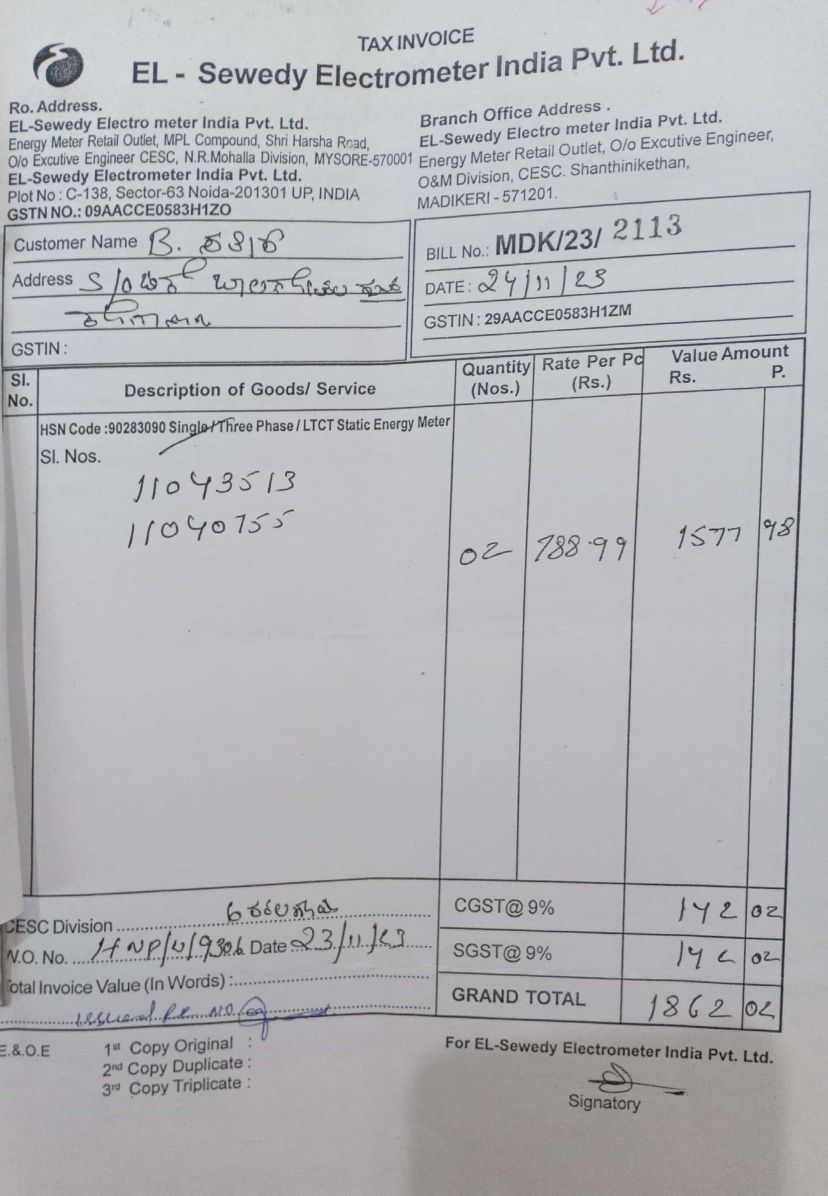 TAX INVOICE
EL - Sewedy Electrometer India Pvt. Ltd.
Ro. Address.
EL-Sewedy Electro meter India Pvt. Ltd.
Energy Meter Retail Outlet, MPL Compound, Shri Harsha Road,
O/o Excutive Engineer CESC, N.R.Mohalla Division, MYSORE-570001
EL-Sewedy Electrometer India Pvt. Ltd.
Plot No : C-138, Sector-63 Noida-201301 UP, INDIA
GSTN NO.: 09AACCE0583H1ZO
Branch Office Address .
EL-Sewedy Electro meter India Pvt. Ltd.
Energy Meter Retail Outlet, O/o Excutive Engineer,
O&M Division, CESC. Shanthinikethan,
MADIKERI - 571201.
Customer Name B.
Address S/o
GSTIN :
BILL No.: MDK/23/ 2113
DATE : 24/11/23
GSTIN : 29AACCE0583H1ZM
Sl. No. Description of Goods/ Service Quantity (Nos.) Rate Per Pc (Rs.) Value Amount Rs. P.
HSN Code :90283090 Single/Three Phase / LTCT Static Energy Meter
Sl. Nos.
11043513
11040755
02 788.99 1577 98
CESC Division
W.O. No. Date 23/11/23
Total Invoice Value (In Words) :
CGST@ 9% 142 02
SGST@ 9% 142 02
GRAND TOTAL 1862 02
E.&.O.E
1st Copy Original :
2nd Copy Duplicate :
3rd Copy Triplicate :
For EL-Sewedy Electrometer India Pvt. Ltd.
Signatory